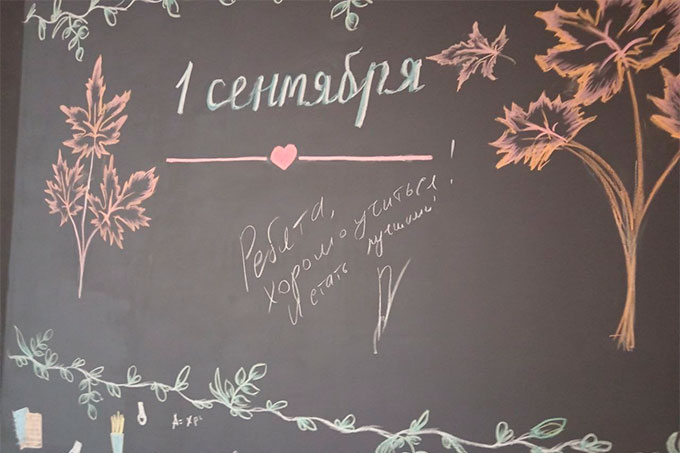 1 сентября
Ребята,
хорошо учиться!
И стать лучшими!